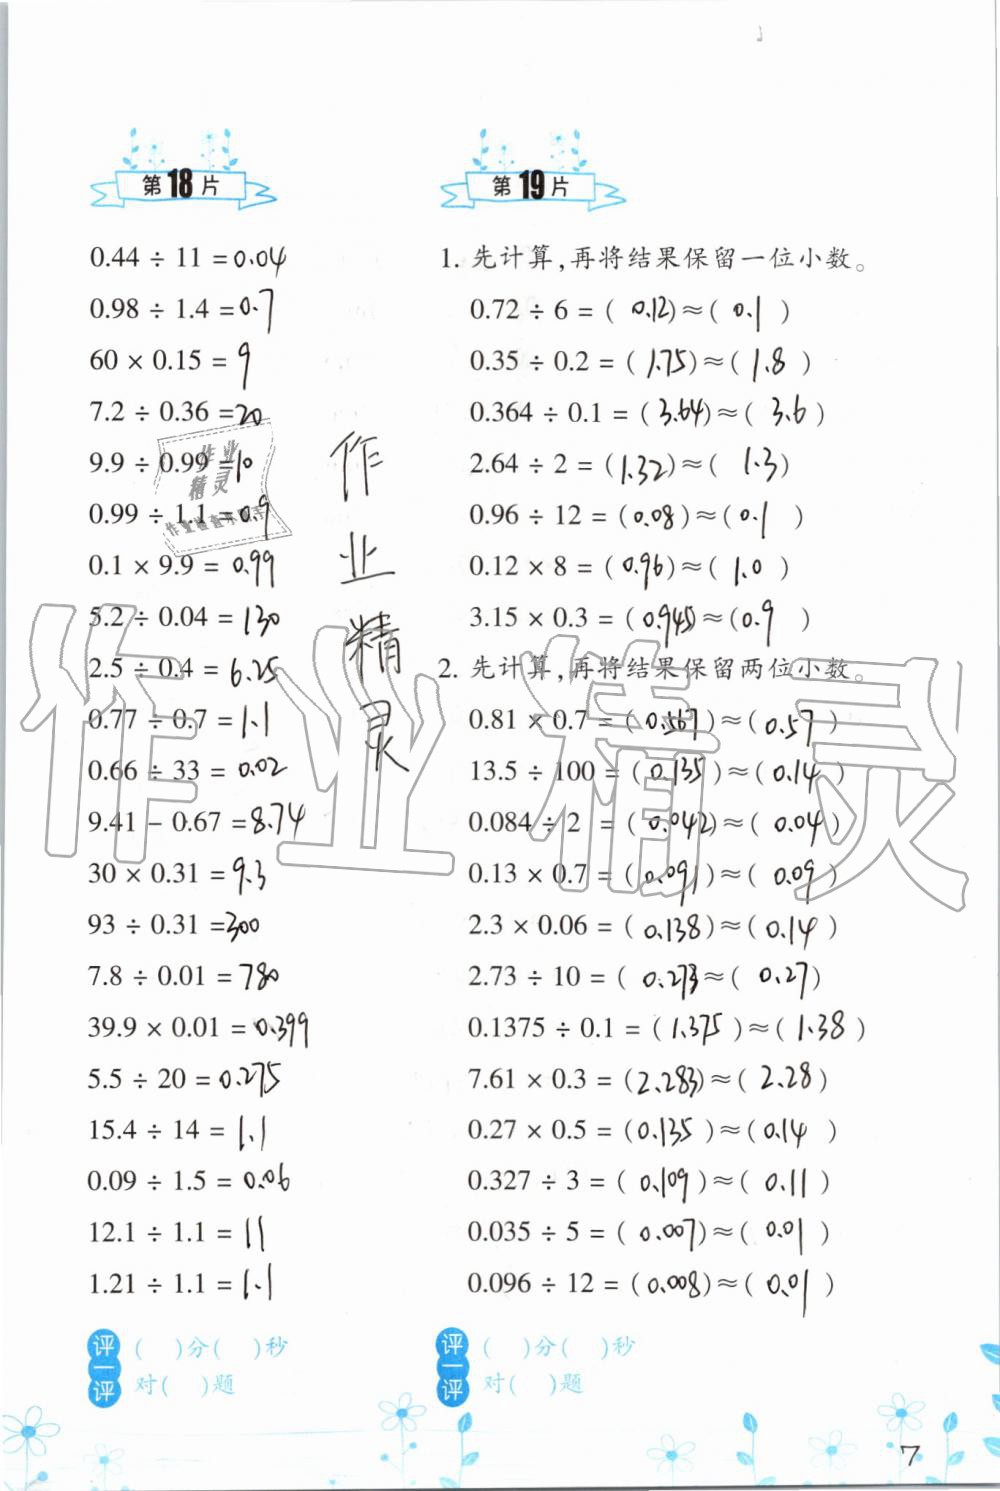 第18片
0.44 ÷ 11 = 0.04
0.98 ÷ 1.4 = 0.7
60 × 0.15 = 9
7.2 ÷ 0.36 = 20
9.9 ÷ 0.99 = 10
0.99 ÷ 1.1 = 0.9
0.1 × 9.9 = 0.99
5.2 ÷ 0.04 = 130
2.5 ÷ 0.4 = 6.25
0.77 ÷ 0.7 = 1.1
0.66 ÷ 33 = 0.02
9.41 − 0.67 = 8.74
30 × 0.31 = 9.3
93 ÷ 0.31 = 300
7.8 ÷ 0.01 = 780
39.9 × 0.01 = 0.399
5.5 ÷ 20 = 0.275
15.4 ÷ 14 = 1.1
0.09 ÷ 1.5 = 0.06
12.1 ÷ 1.1 = 11
1.21 ÷ 1.1 = 1.1
评一评
( )分( )秒
对( )题
作业
精灵
作业精灵
作业精灵
第19片
1. 先计算,再将结果保留一位小数。
0.72 ÷ 6 = ( 0.12 ) ≈ ( 0.1 )
0.35 ÷ 0.2 = ( 1.75 ) ≈ ( 1.8 )
0.364 ÷ 0.1 = ( 3.64 ) ≈ ( 3.6 )
2.64 ÷ 2 = ( 1.32 ) ≈ ( 1.3 )
0.96 ÷ 12 = ( 0.08 ) ≈ ( 0.1 )
0.12 × 8 = ( 0.96 ) ≈ ( 1.0 )
3.15 × 0.3 = ( 0.945 ) ≈ ( 0.9 )
2. 先计算,再将结果保留两位小数。
0.81 × 0.7 = ( 0.567 ) ≈ ( 0.57 )
13.5 ÷ 100 = ( 0.135 ) ≈ ( 0.14 )
0.084 ÷ 2 = ( 0.042 ) ≈ ( 0.04 )
0.13 × 0.7 = ( 0.091 ) ≈ ( 0.09 )
2.3 × 0.06 = ( 0.138 ) ≈ ( 0.14 )
2.73 ÷ 10 = ( 0.273 ≈ ( 0.27 )
0.1375 ÷ 0.1 = ( 1.375 ) ≈ ( 1.38 )
7.61 × 0.3 = ( 2.283 ) ≈ ( 2.28 )
0.27 × 0.5 = ( 0.135 ) ≈ ( 0.14 )
0.327 ÷ 3 = ( 0.109 ) ≈ ( 0.11 )
0.035 ÷ 5 = ( 0.007 ) ≈ ( 0.01 )
0.096 ÷ 12 = ( 0.008 ) ≈ ( 0.01 )
评一评
( )分( )秒
对( )题
7